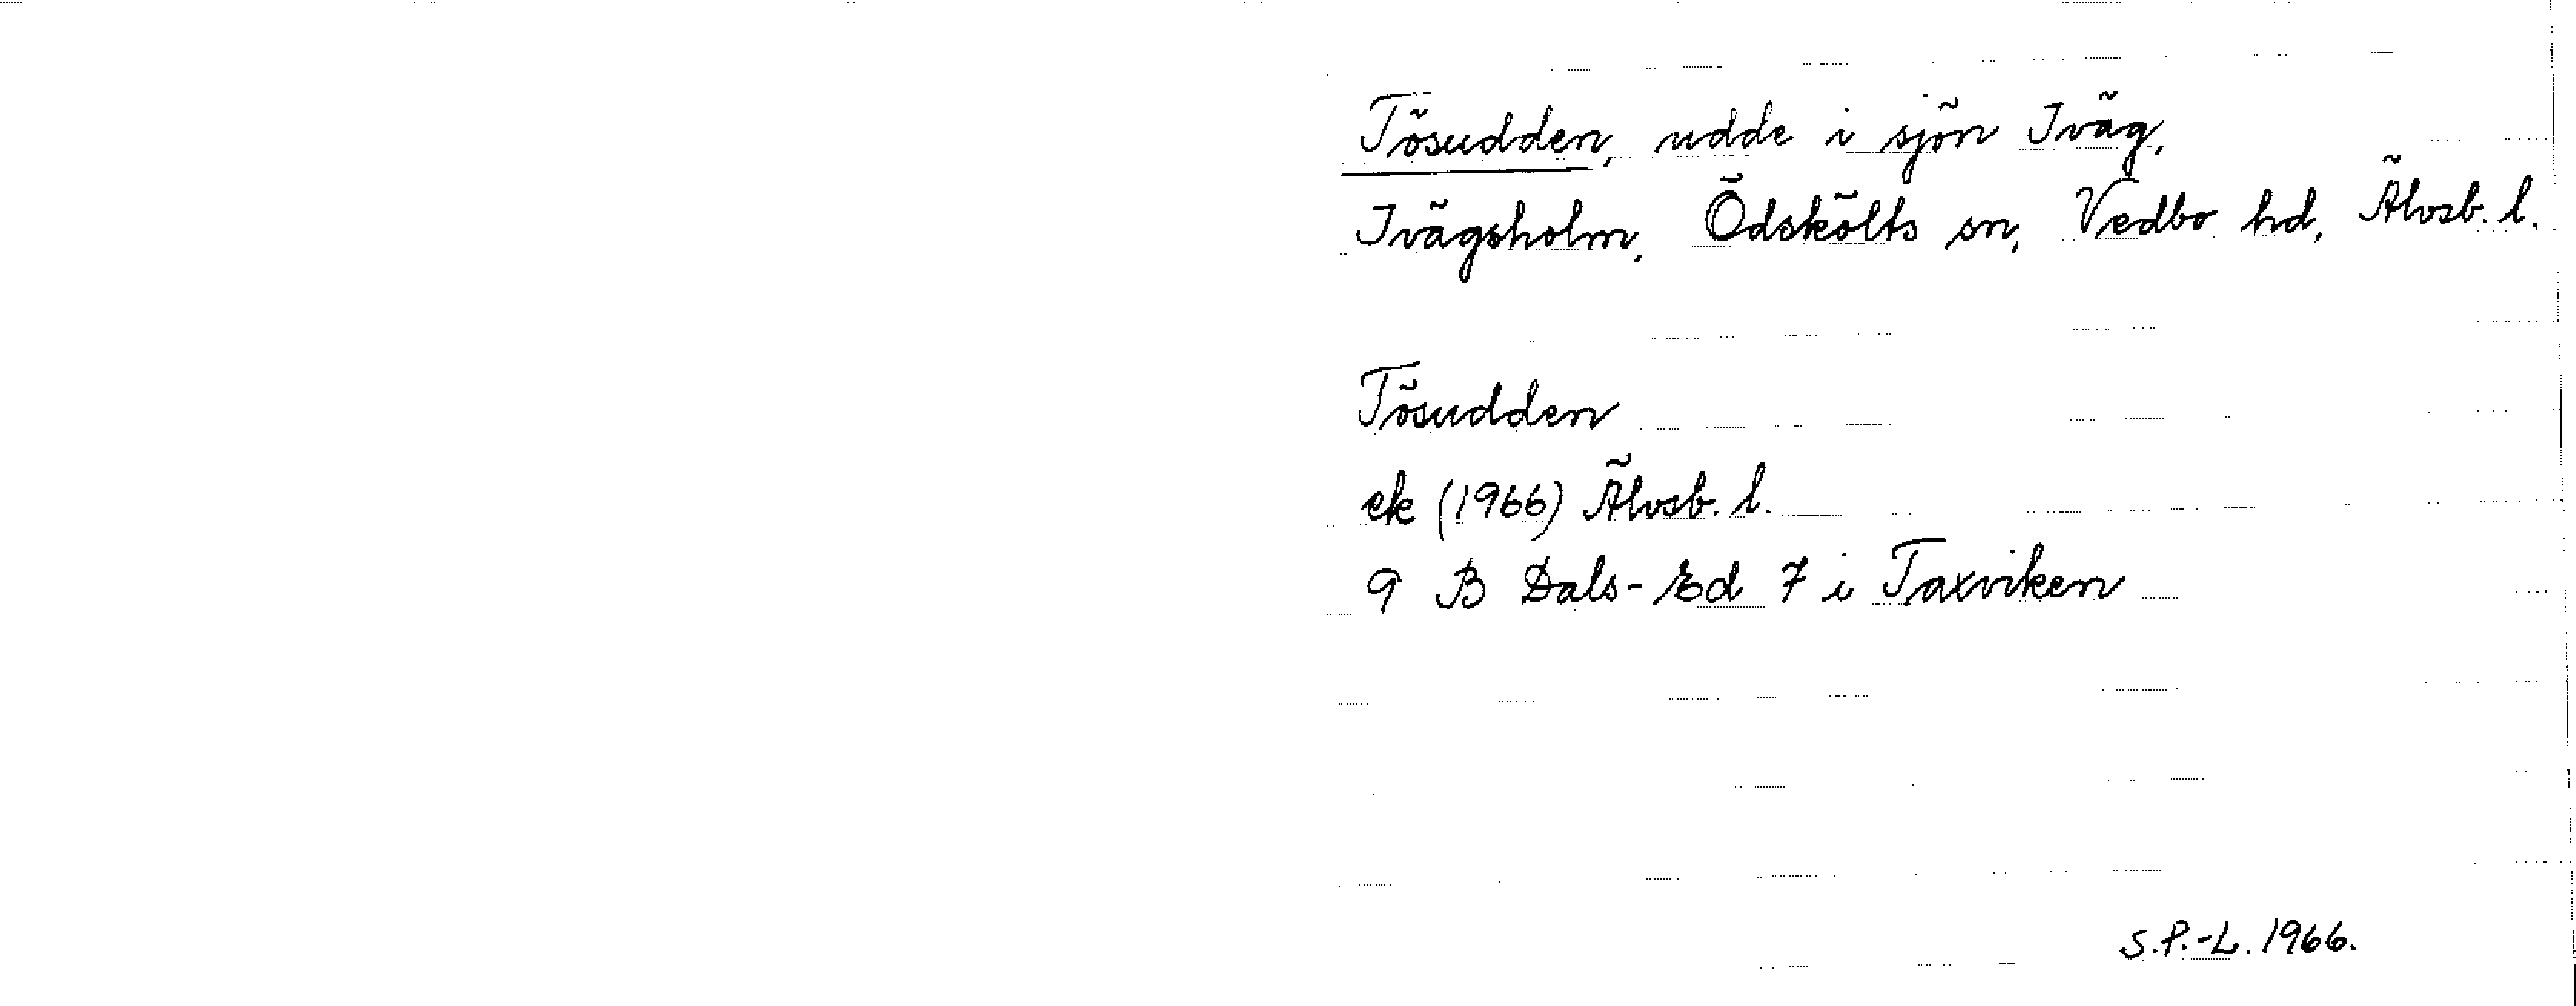 Tösudden, udde i sjön Iväg,
Ivägsholm, Ödskölts sn, Vedbo hd, Älvsb. l.
Tösudden
ek (1966) Älvsb. l.
9 B Dals-Ed 7 i Taxviken
S.P.-L. 1966.